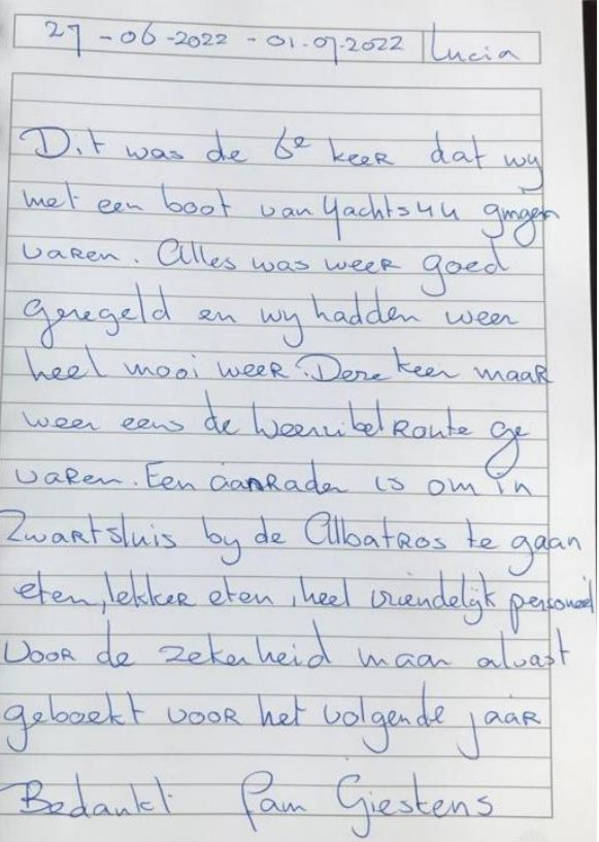 27-06-2022 - 01-07-2022 Lucia
Dit was de 6e keer dat wy
met een boot van Yachts4u gingen
varen. Alles was weer goed
geregeld en wy hadden weer
heel mooi weer. Deze keer maar
weer eens de Weerribel Route ge
varen. Een aanrader is om in
Zwartsluis by de Albatros te gaan
eten, lekker eten, heel vriendelijk personeel
Voor de zekerheid maar alvast
geboekt voor het volgende jaar
Bedankt Fam Giestens